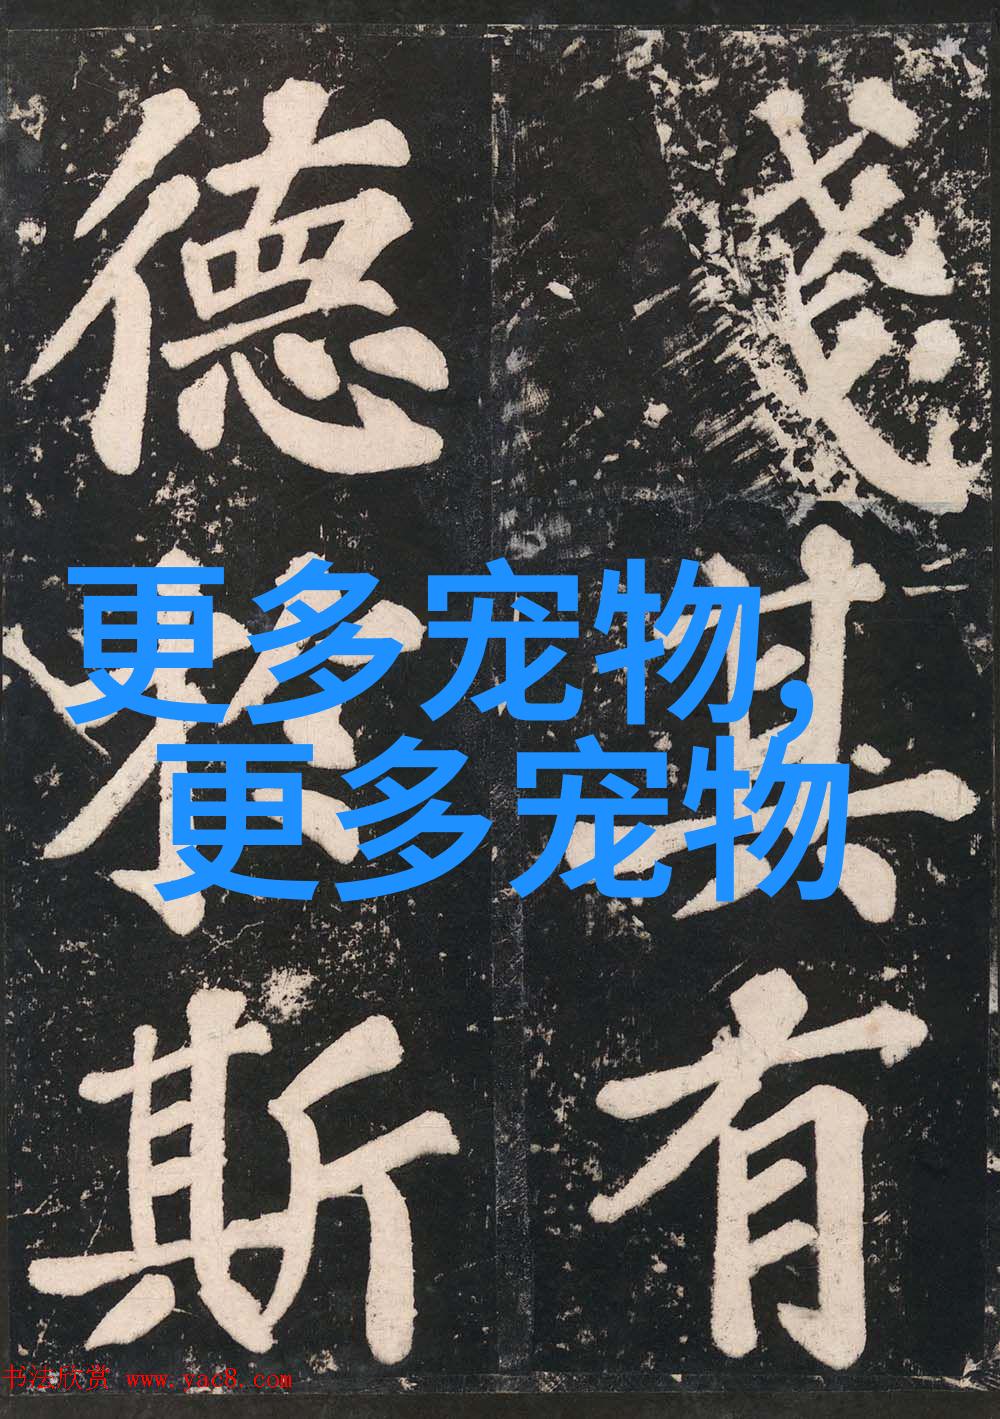 其有
德斯
更多宠物,
更多宠物
书法欣赏 www.yac8.com